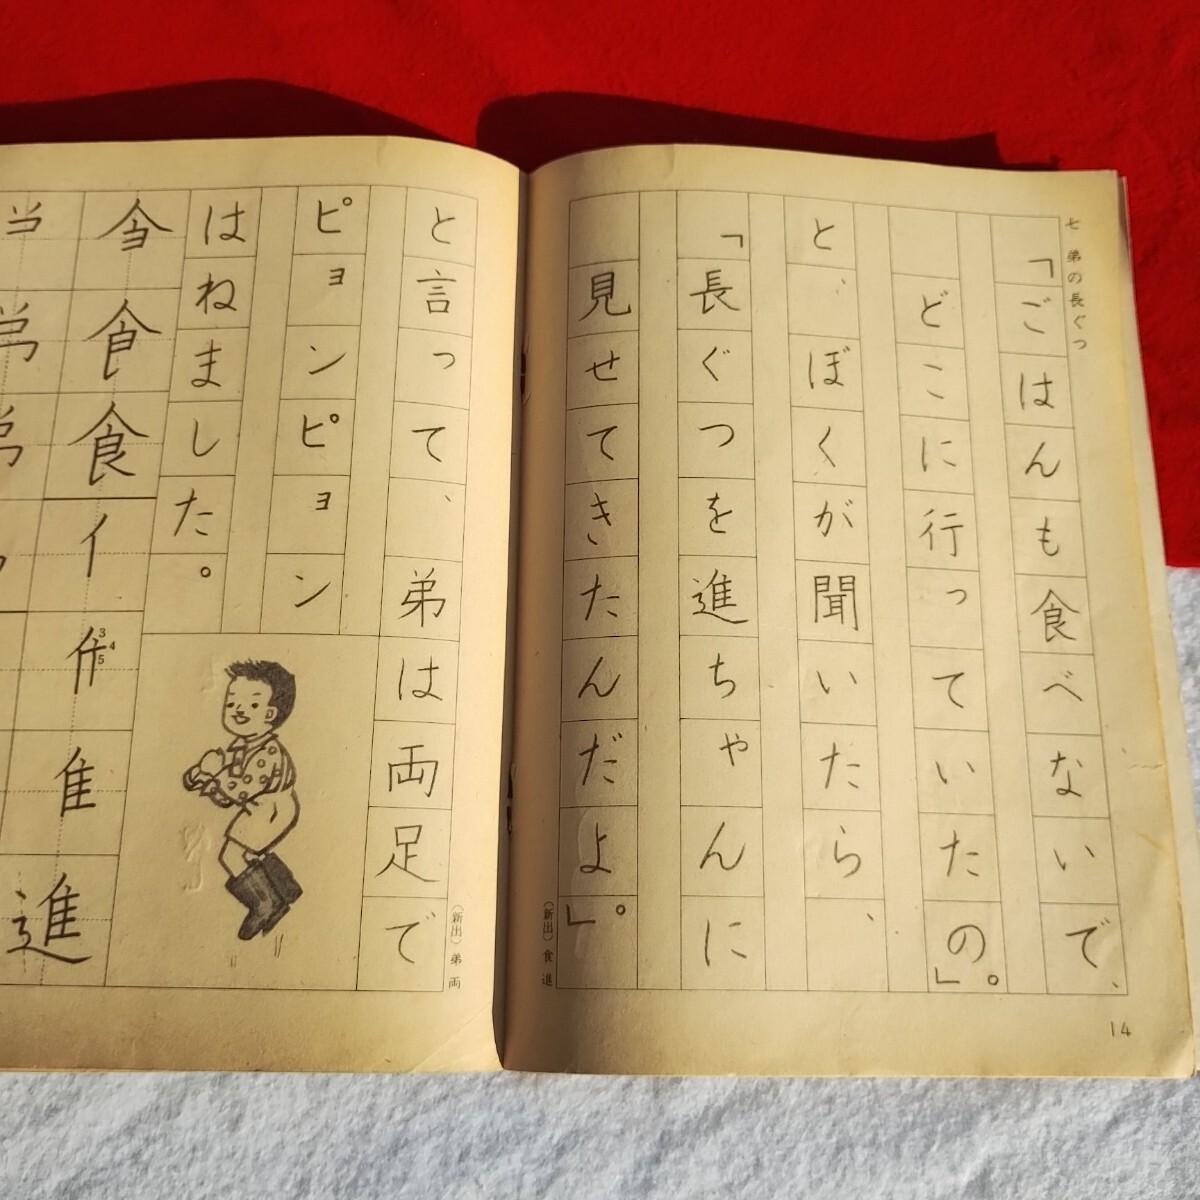 七 弟の長ぐつ
「ごはんも食べないで、
どこに行っていたの」。
と、ぼくが聞いたら、
「長ぐつを進ちゃんに
見せてきたんだよ」。
(新出) 食 進
14
と言って、弟は両足で
ピョンピョン
はねました。
(新出) 弟 両
食 食 隹 進
3
4
5